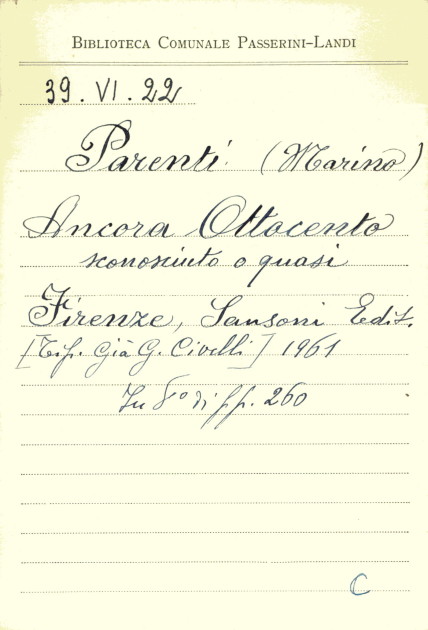 BIBLIOTECA COMUNALE PASSERINI-LANDI
39. VI. 22
Parenti (Marino)
Ancora Ottocento
sconosciuto o quasi
Firenze, Sansoni Edit.
[Tip. Già G. Civelli] 1961
In 8° di pp. 260
C